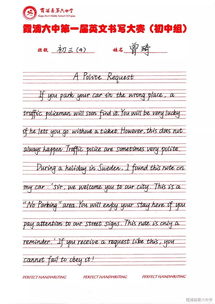 霞浦六中第一届英文书写大赛（初中组）
班级 初三(4) 姓名
A Polite Request
If you park your car in the wrong place, a
traffic policeman will soon find it. You will be very lucky
if he lets you go without a ticket. However, this does not
always happen. Traffic police are sometimes very polite.
During a holiday in Sweden, I found this note on
my car: "sir, we welcome you to our city. This is a
"No Parking" area. You will enjoy your stay here if you
pay attention to our street signs. This note is only a
reminder." If you receive a request like this, you
cannot fail to obey it!
PERFECT HANDWRITING PERFECT HANDWRITING PERFECT HANDWRITING